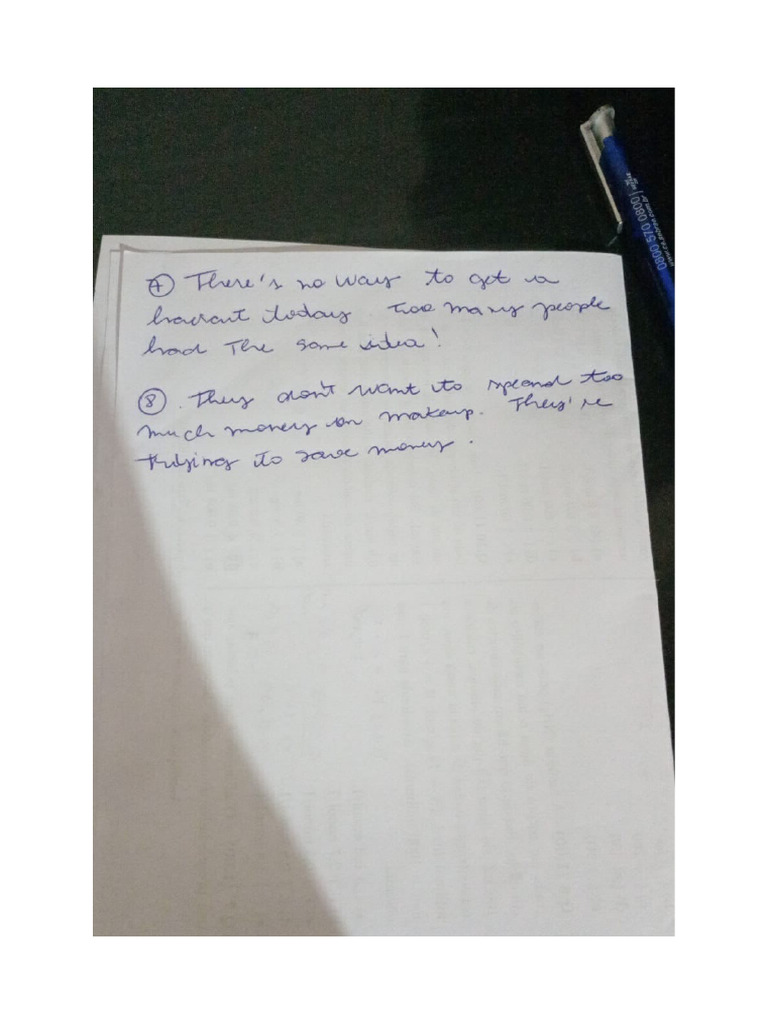 7 There's no way to get a
haircut today. Too many people
had the same idea!
8. They don't want to spend too
much money on makeup. They're
trying to save money.
0800 570 0800